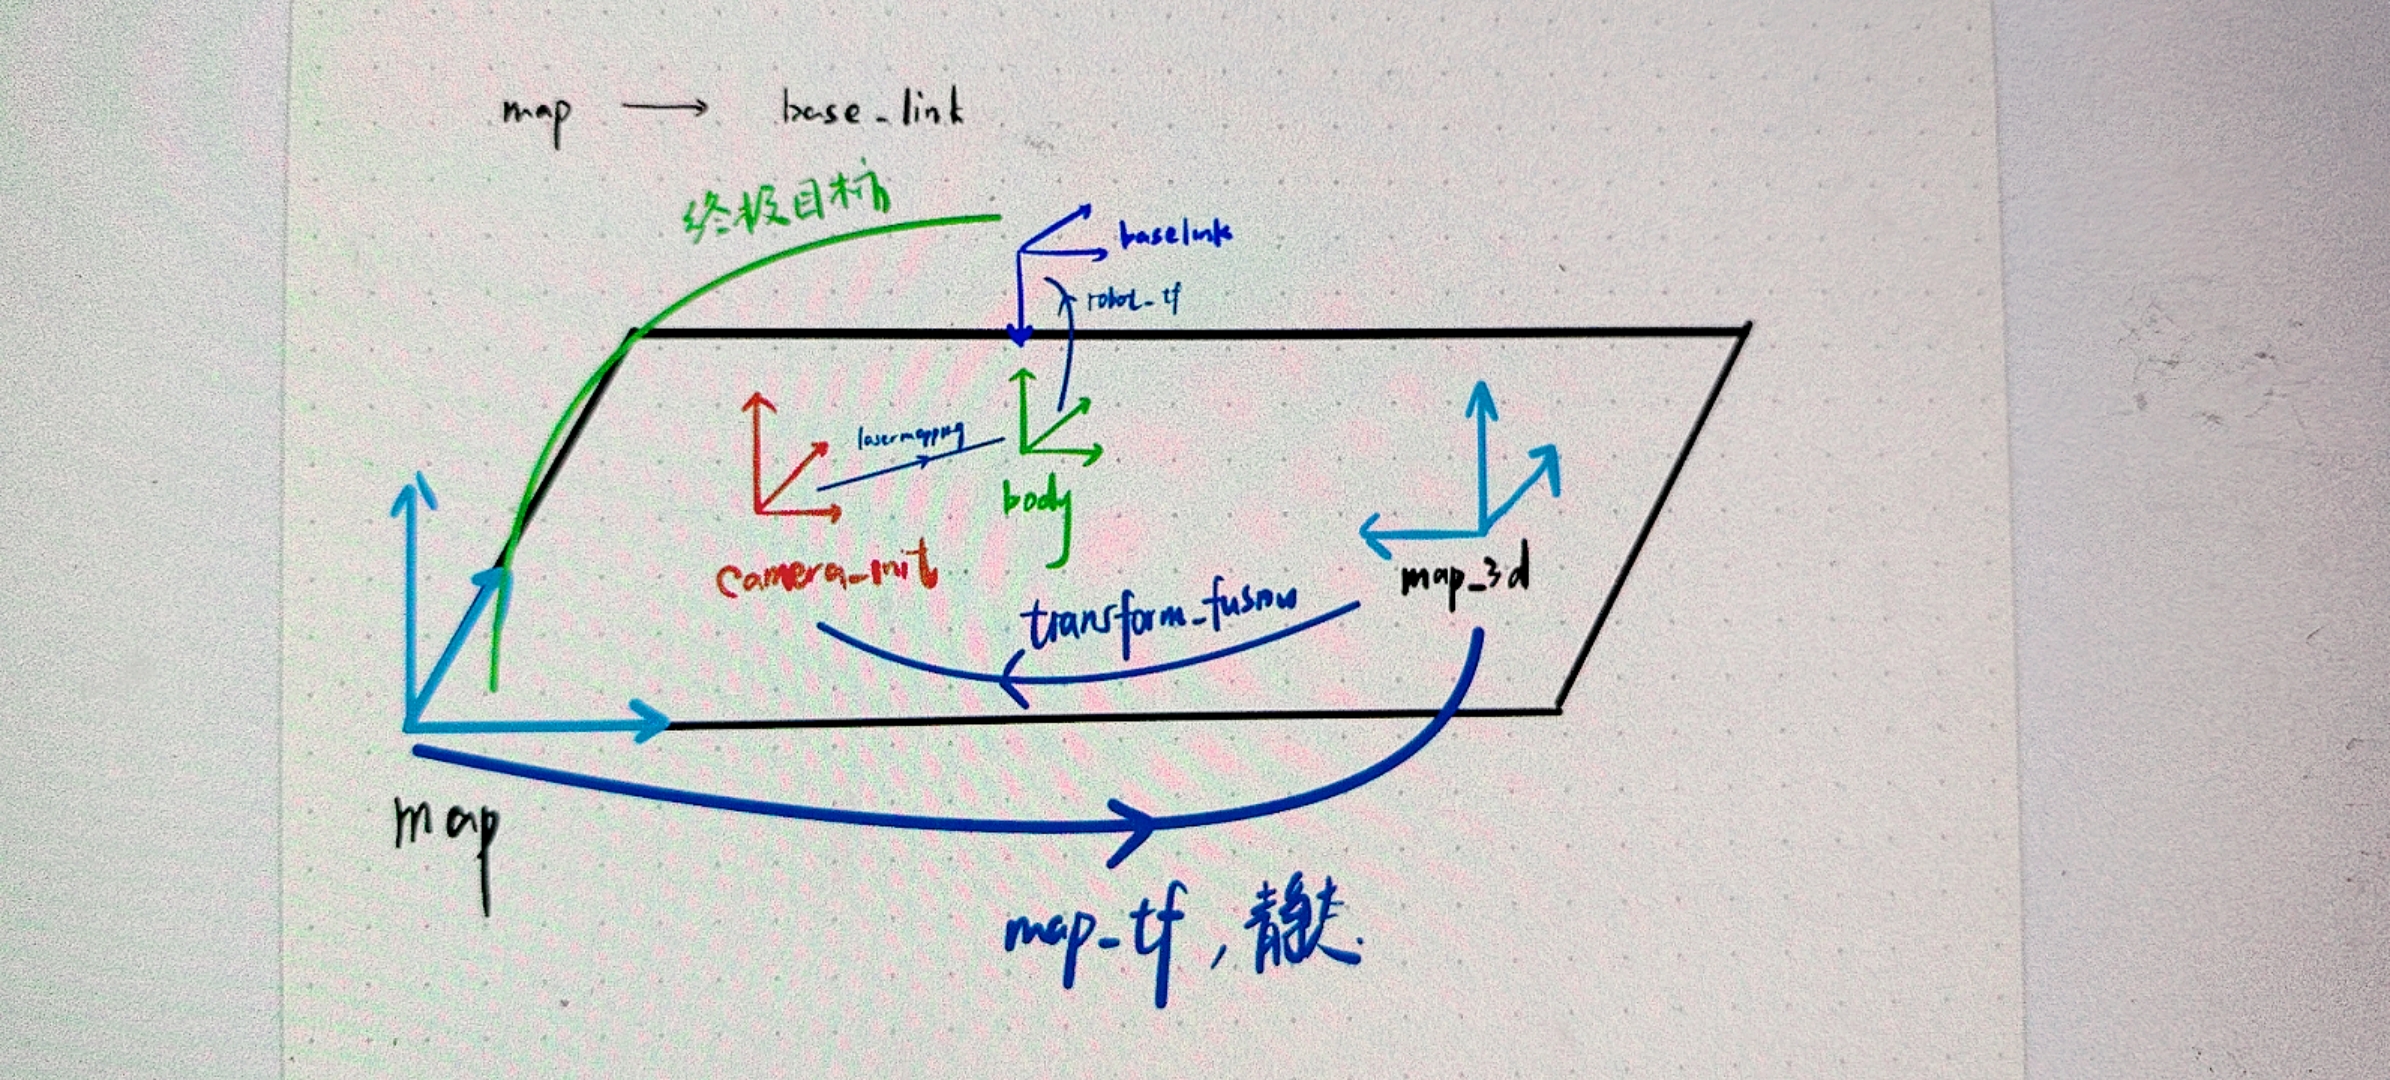 map → base_link
终极目标
baselink
robot_tf
lasermapping
body
camera_init
map_3d
transform_fusion
map
map_tf, 静态.